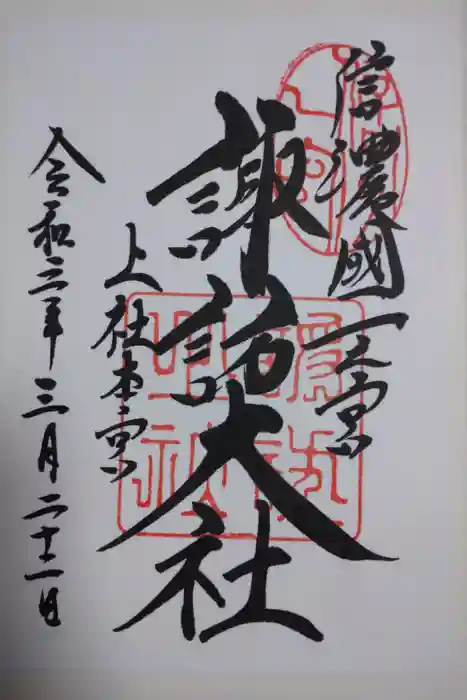 信濃國一之宮
諏訪大社
上社本宮
令和三年三月二十一日